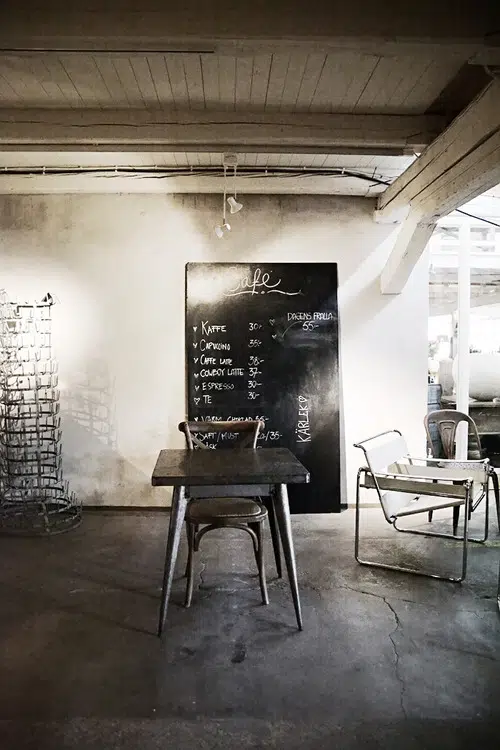 Café
KAFFE 30:-
CAPUCCINO 35:-
CAFFE LATE 38:-
COWBOY LATTE 37-
ESPRESSO 30-
TE 30-
VARM CHOKLAD 35-
SAFT/MUST 30/35-
DAGENS FRALLA
65:-
KÄRLEK